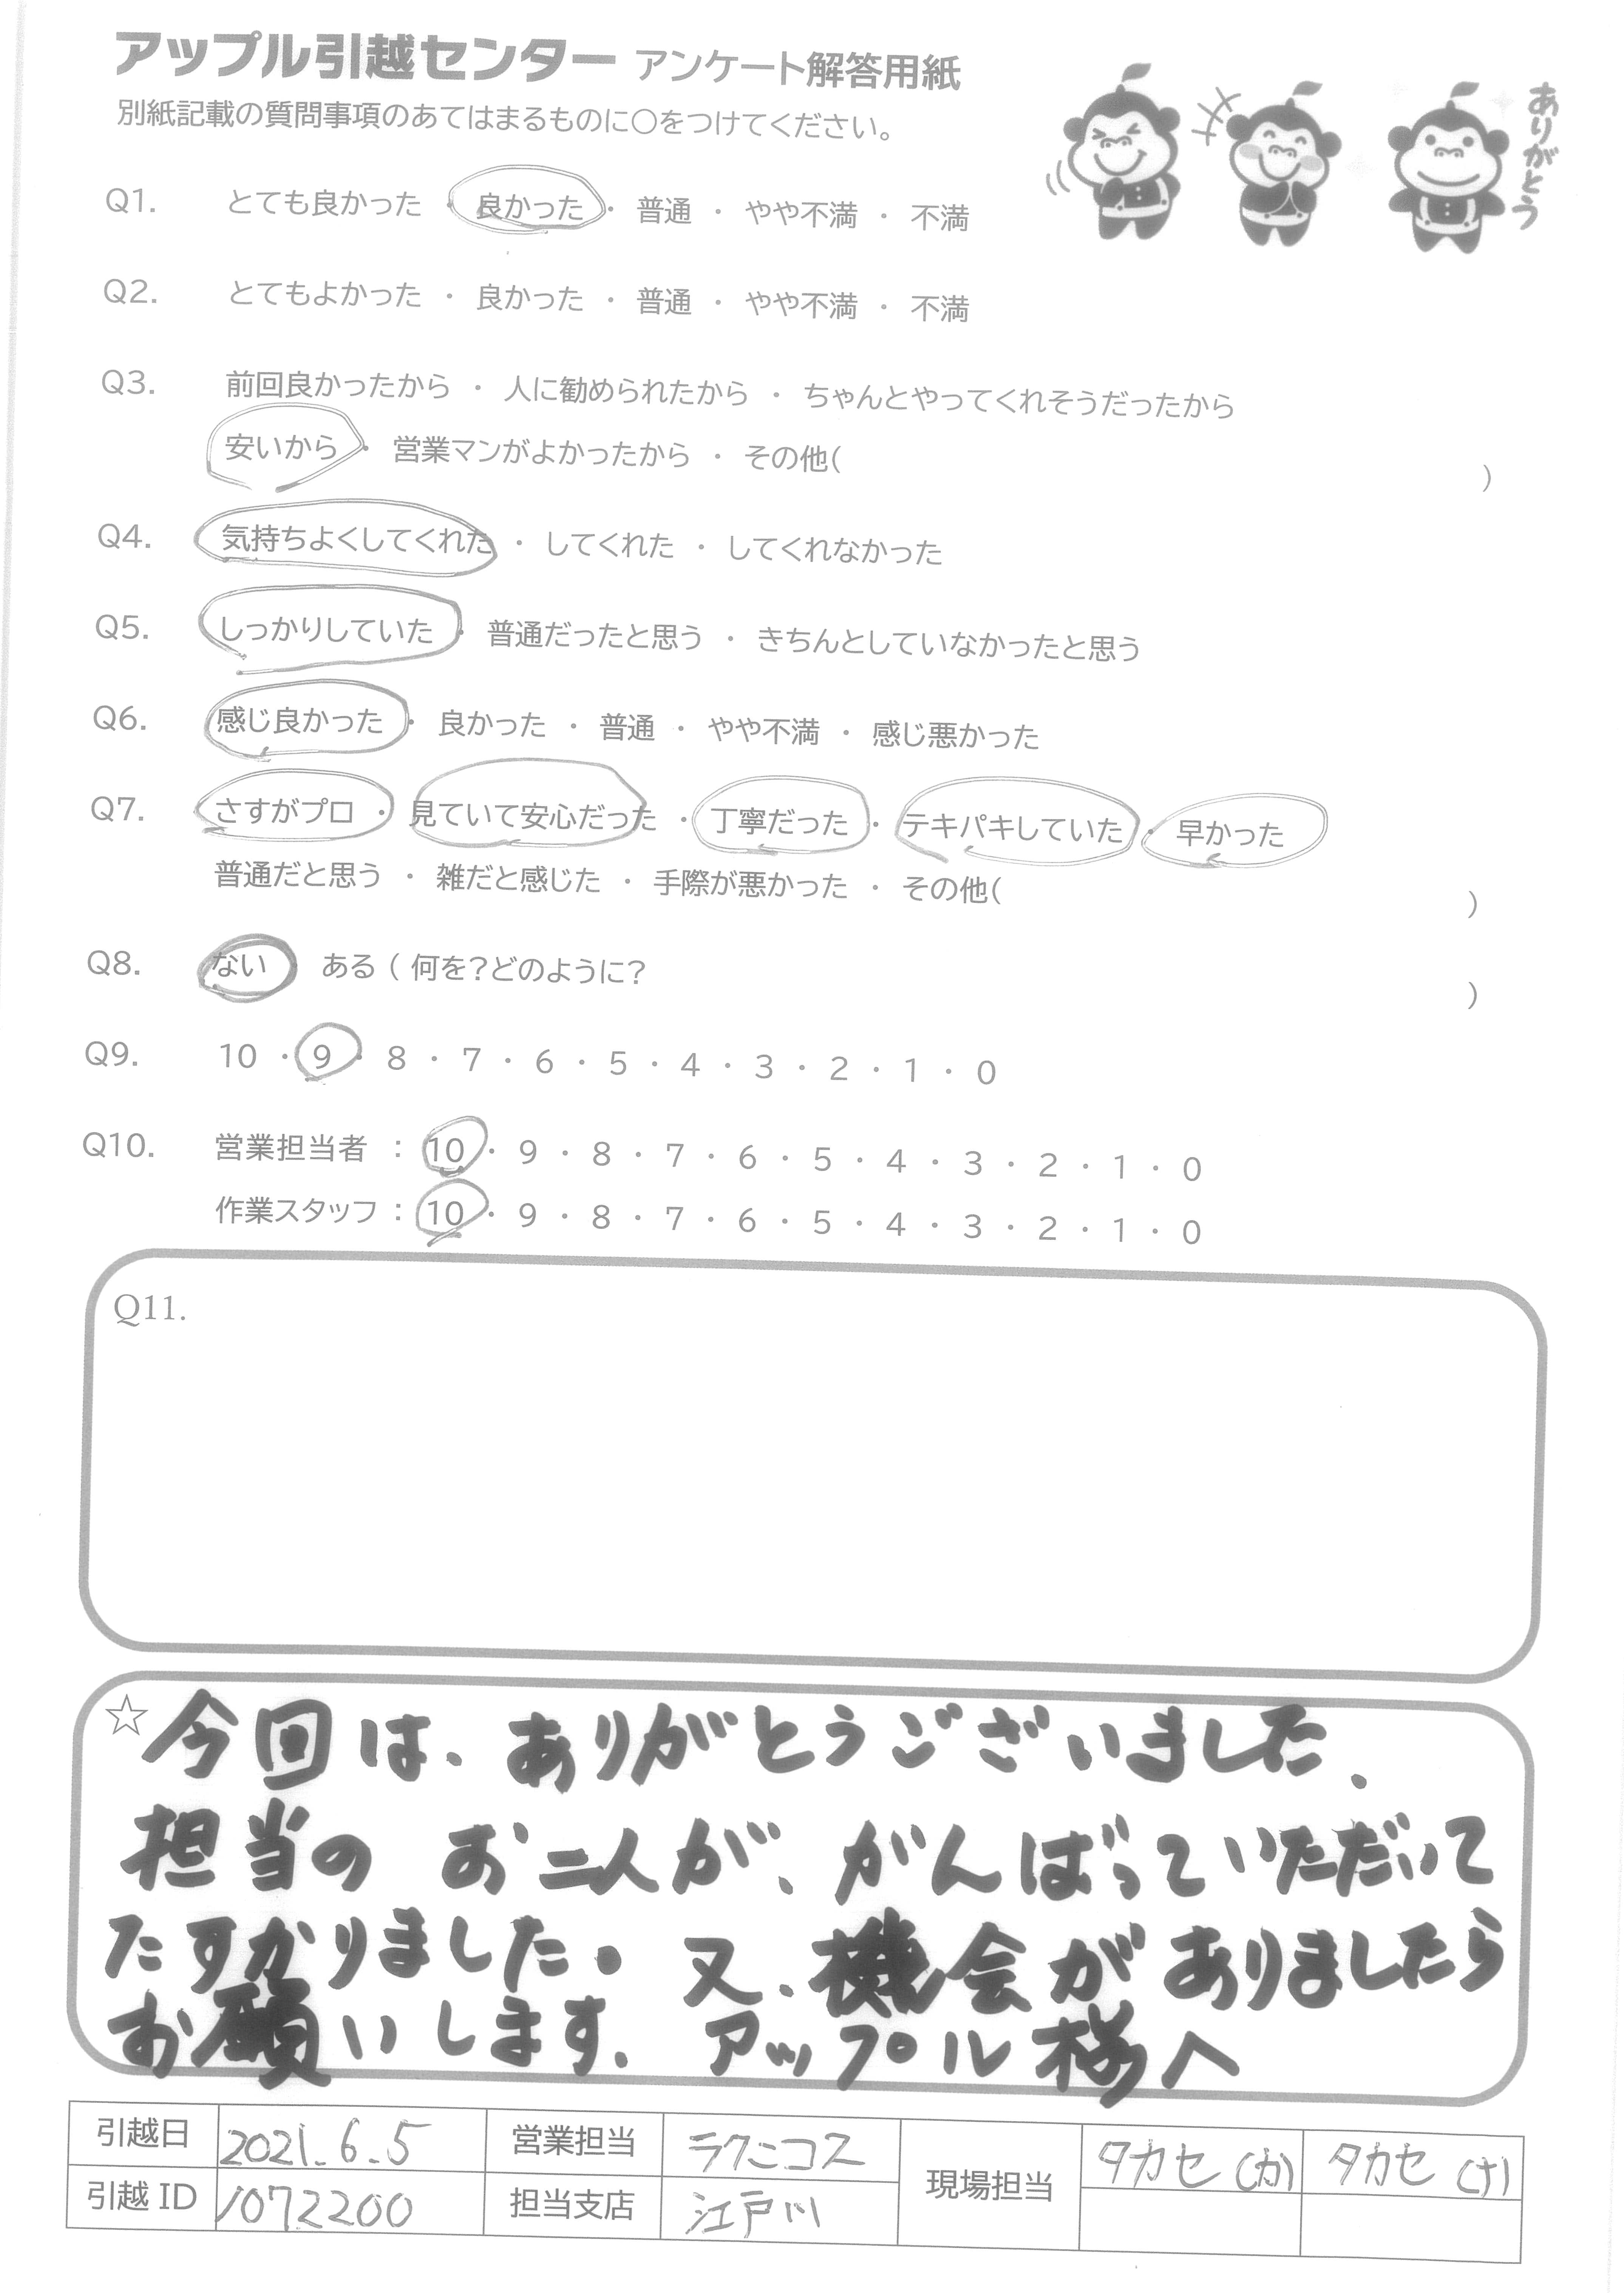 アップル引越センター アンケート解答用紙
別紙記載の質問事項のあてはまるものに〇をつけてください。
ありがとう
Q1. とても良かった ・ 良かった ・ 普通 ・ やや不満 ・ 不満
Q2. とてもよかった ・ 良かった ・ 普通 ・ やや不満 ・ 不満
Q3. 前回良かったから ・ 人に勧められたから ・ ちゃんとやってくれそうだったから
安いから ・ 営業マンがよかったから ・ その他( )
Q4. 気持ちよくしてくれた ・ してくれた ・ してくれなかった
Q5. しっかりしていた ・ 普通だったと思う ・ きちんとしていなかったと思う
Q6. 感じ良かった ・ 良かった ・ 普通 ・ やや不満 ・ 感じ悪かった
Q7. さすがプロ ・ 見ていて安心だった ・ 丁寧だった ・ テキパキしていた ・ 早かった
普通だと思う ・ 雑だと感じた ・ 手際が悪かった ・ その他( )
Q8. ない ある ( 何を?どのように? )
Q9. 10 ・ 9 ・ 8 ・ 7 ・ 6 ・ 5 ・ 4 ・ 3 ・ 2 ・ 1 ・ 0
Q10. 営業担当者 : 10 ・ 9 ・ 8 ・ 7 ・ 6 ・ 5 ・ 4 ・ 3 ・ 2 ・ 1 ・ 0
作業スタッフ : 10 ・ 9 ・ 8 ・ 7 ・ 6 ・ 5 ・ 4 ・ 3 ・ 2 ・ 1 ・ 0
Q11.
☆今回は、ありがとうございました.
担当の お二人が、がんばっていただいて
たすかりました。又、機会がありましたら
お願いします. アップル様へ
引越日 2021.6.5 営業担当 ラクニコス 現場担当 タカセ(か) タカセ(ナ)
引越ID 1072200 担当支店 江戸川